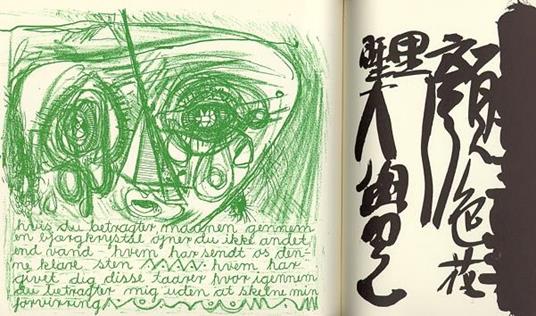 hvis du betragter maanen gennem
en bjærgkrystal øjner du ikke andet
end vand - hvem har sendt os den-
ne klare sten hvem har
givet dig disse taarer hvor igennem
du betragter mig uden at skelne min
forvirring
顏色花